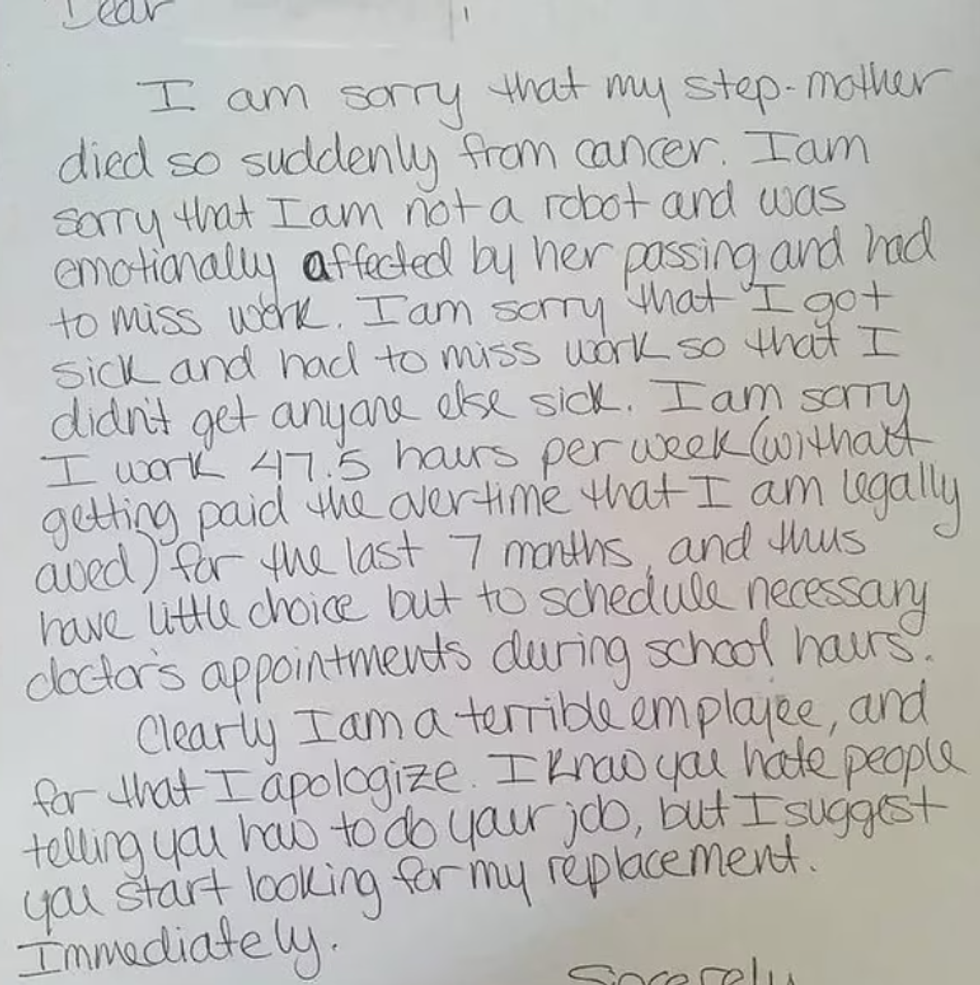 Dear
I am sorry that my step-mother
died so suddenly from cancer. I am
sorry that I am not a robot and was
emotionally affected by her passing and had
to miss work. I am sorry that I got
sick and had to miss work so that I
didn't get anyone else sick. I am sorry
I work 47.5 hours per week (without
getting paid the overtime that I am legally
owed) for the last 7 months, and thus
have little choice but to schedule necessary
doctor's appointments during school hours.
Clearly I am a terrible employee, and
for that I apologize. I know you hate people
telling you how to do your job, but I suggest
you start looking for my replacement.
Immediately.
Sincerely